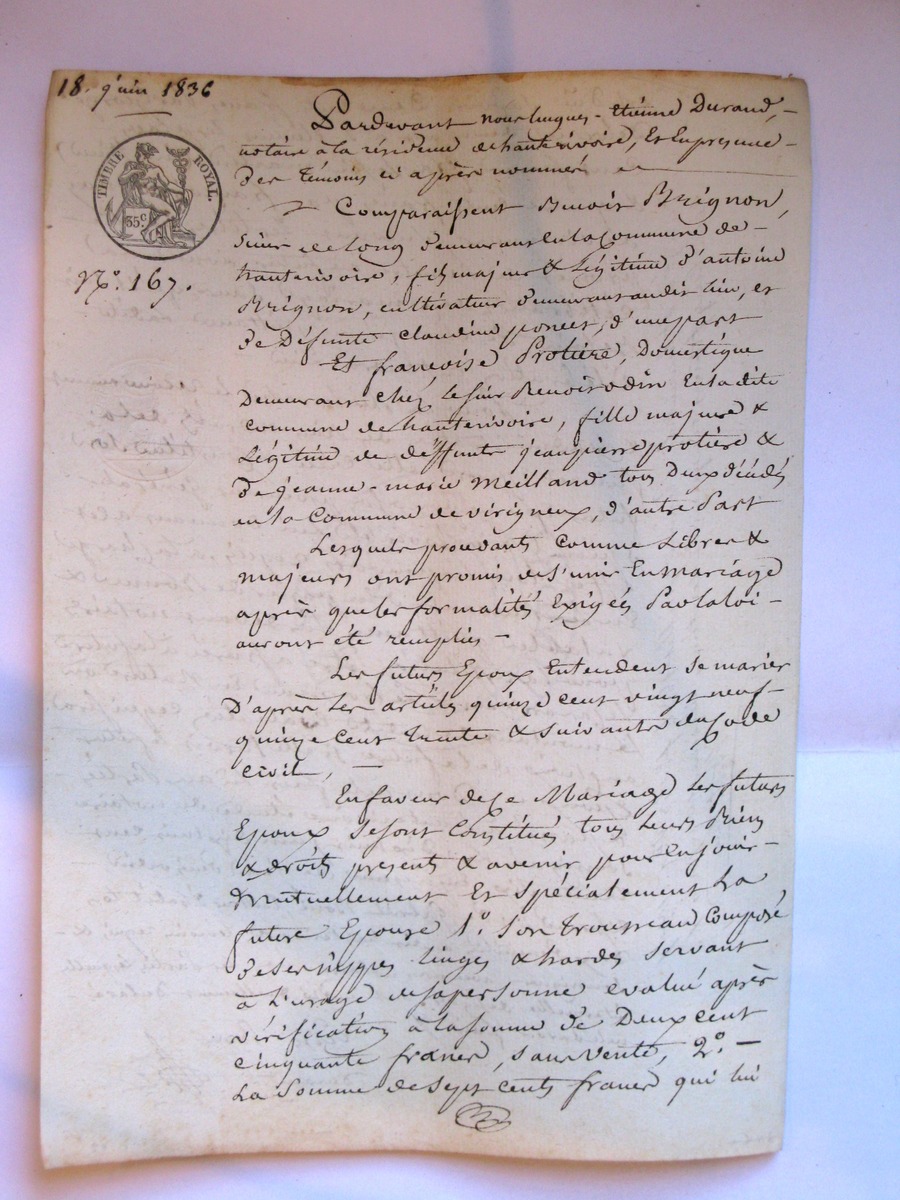 18. juin 1836
TIMBRE ROYAL.
35c
No. 167.
Pardevant nous hugues - Etiénne Durand, -
notaire à la résidence de hauterivoire, Et En présence -
Des témoins ci après nommés
Comparaissent Benoit Brignon,
demeurant En la Commune de -
hauterivoire, fils majeur & Légitime d'antoine
Brignon, cultivateur demeurant audit lieu, et
De Défunte claudine poncet, d'une part
Et francoise Protière, Domestique
Demeurant chez le sieur Benoit odin En la dite
Commune de hauterivoire, fille majeure &
Légitime de déffunts jean pierre protière &
De jeanne - marie Meilland tous Deux décédés
en la Commune de virigneux, d'autre Part
Lesquels procedants Comme Libres &
majeurs ont promis de s'unir En mariage
après que les formalités Exigées Par la loi -
auront été remplies -
Les futurs Epoux Entendent se marier
D'après Les articles quinze cent vingt neuf -
quinze Cent trente & suivants du Code
civil, -
En faveur de Ce Mariage Les futurs
Epoux se sont Constitués tous Leurs Biens
& droits présents & avenir pour En jouir -
Mutuellement Et spécialement La
future Epouse 1o. Son trousseau Composé
De ses nippes linges & hardes servant
à L'usage de sa personne evalué après
vérification à la somme de Deux cent
Cinquante francs, sans vente, 2o. -
La Somme de Sept cents francs qui lui